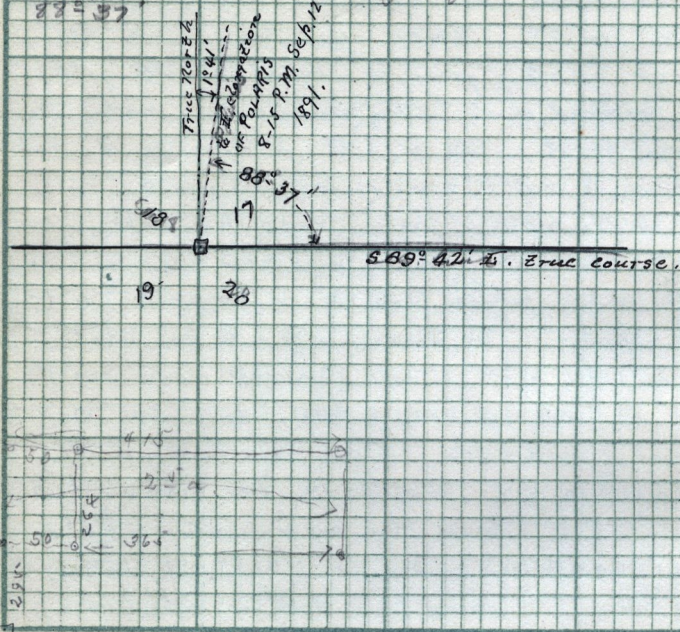 88° 37'
True North
1° 41'
Elongation
OF POLARIS
8-15 P.M. Sep. 12
1891.
88° 37'
18
17
S 89° 42' E. true course.
19
20
415
50
2 5 a
264
50
365
295